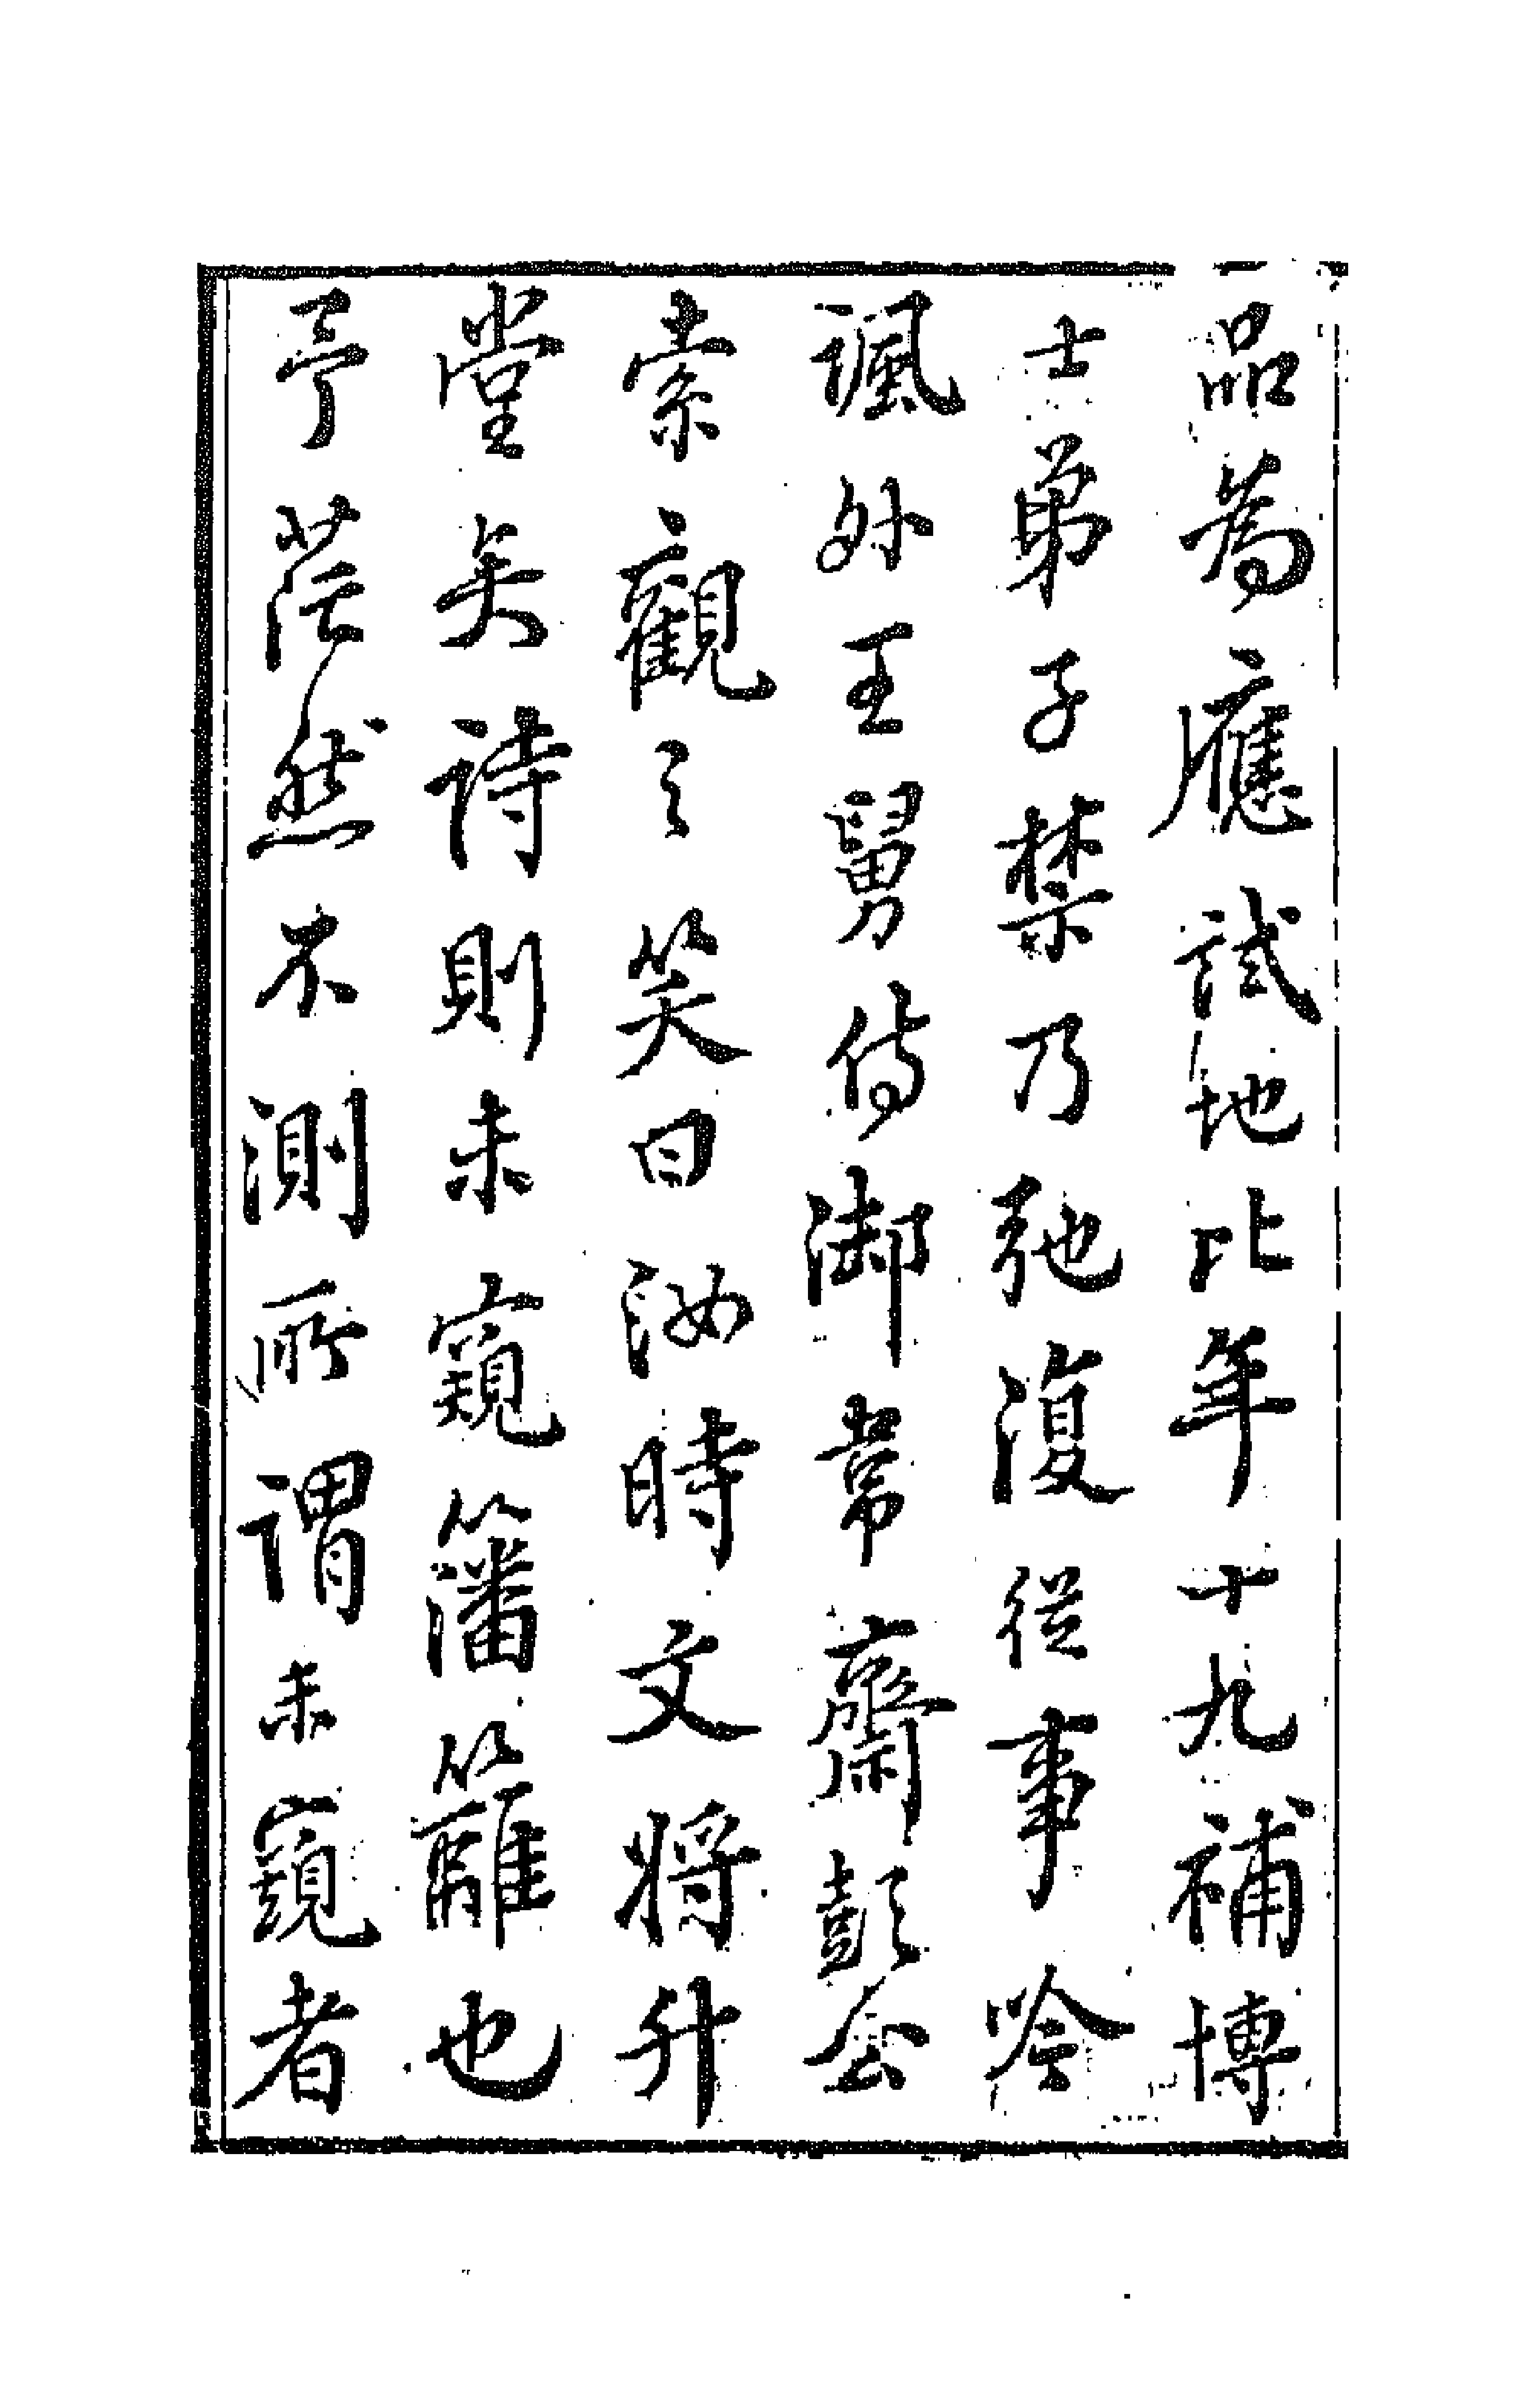 品為應試地比年十九補博
士弟子禁乃弛復從事吟
諷外王舅侍御常齋彭公
索觀之笑曰汝時文將升
堂矣詩則未窺籓籬也
亭茫然不測所謂未窺者